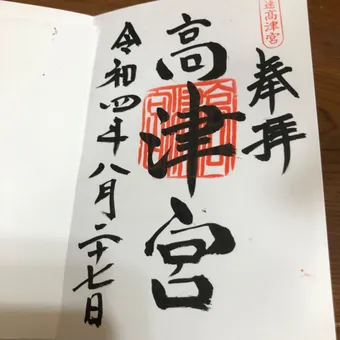 奉拝
高津宮
令和四年八月二十七日